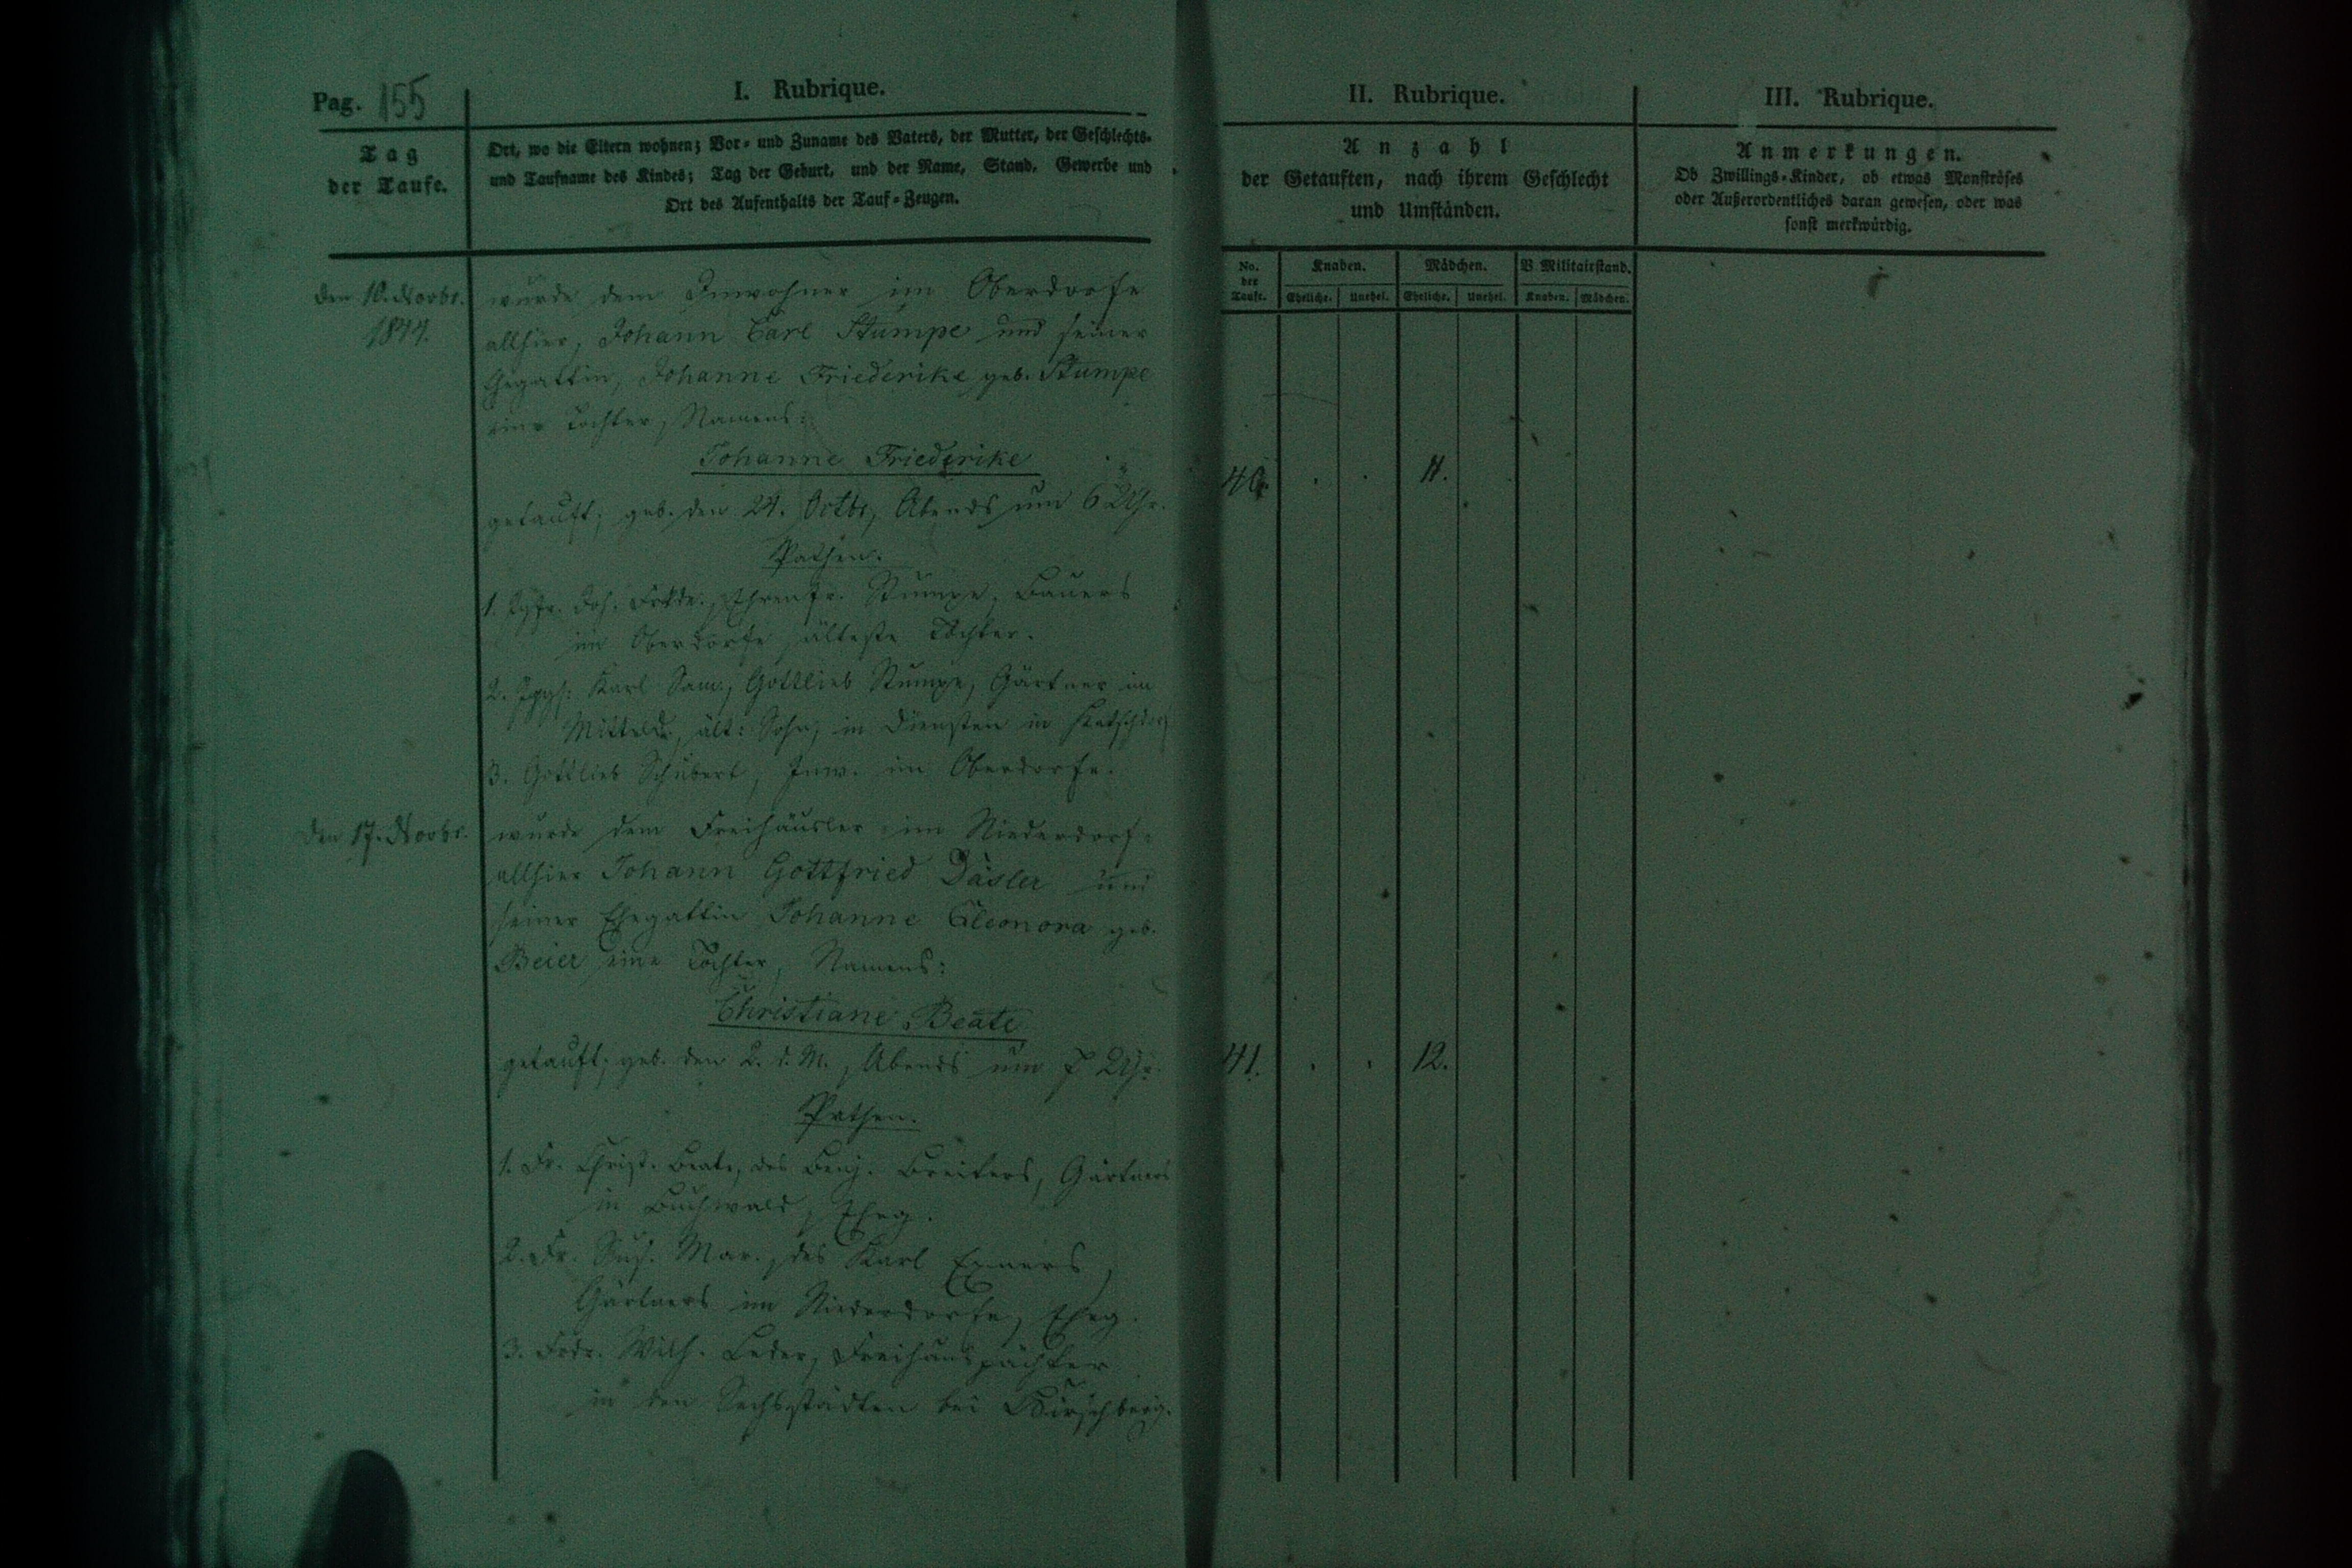 Pag. 155
I. Rubrique.
Tag
der Taufe.
Ort, wo die Eltern wohnen; Vor- und Zuname des Vaters, der Mutter, der Geschlechts-
und Taufname des Kindes; Tag der Geburt, und der Name, Stand, Gewerbe und
Ort des Aufenthalts der Tauf-Zeugen.
den 10. Novbr.
1844.
wurde dem Inwohner im Oberdorfe
allhier, Johann Carl Stumpe und seiner
Ehegattin, Johanne Friederike geb. Stumpe
eine Tochter, Namens:
Johanne Friederike
getauft; geb. den 24. Octbr, Abends um 6 Uhr.
Pathen.
1. Igfr. Joh. Frkde., Ehrenfr. Stumpe, Bauers
im Oberdorfe, älteste Tochter.
2. Iggs. Karl Sam., Gottlieb Stumpe, Gärtner im
Mitteld., ält: Sohn, in Diensten in
3. Gottlieb Schubert, Inw. im Oberdorfe.
den 17. Novbr.
wurde dem Freihäusler im Niederdorf
allhier Johann Gottfried Däsler und
seiner Ehegattin Johanne Eleonora geb.
Beier eine Tochter, Namens:
Christiane Beate
getauft; geb. den 2. d. M., Abends um 7 Uhr.
Pathen.
1. Fr. Christ. Beate, des Benj. Breiters, Gärtners
in Buchwald, Eheg.
2. Fr. Sus. Mar., des Karl Exners,
Gärtners im Niederdorfe, Eheg.
3. Frdr. Wilh. Leder, Freihauspächter
in den Sechsstädten bei Hirschberg.
II. Rubrique.
Anzahl
der Getauften, nach ihrem Geschlecht
und Umständen.
No.
der
Taufe.
Knaben. Mädchen. B. Militairstand.
Eheliche. Unehel. Eheliche. Unehel. Knaben. Mädchen.
40. . . 11.
41. . . 12.
III. Rubrique.
Anmerkungen.
Ob Zwillings-Kinder, ob etwas Monströses
oder Außerordentliches daran gewesen, oder was
sonst merkwürdig.